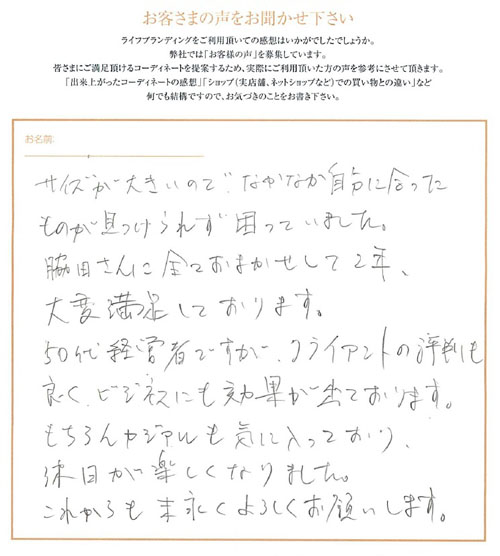 お客さまの声をお聞かせ下さい
ライフブランディングをご利用頂いての感想はいかがでしたでしょうか。
弊社では「お客様の声」を募集しています。
皆さまにご満足頂けるコーディネートを提案するため、実際にご利用頂いた方の声を参考にさせて頂きます。
「出来上がったコーディネートの感想」「ショップ(実店舗、ネットショップなど)での買い物との違い」など
何でも結構ですので、お気づきのことをお書き下さい。
お名前:
サイズが大きいので、なかなか自分に合った
ものが見つけられず困っていました。
脇田さんに全ておまかせして2年、
大変満足しております。
50代経営者ですが、クライアントの評判も
良く、ビジネスにも効果が出ております。
もちろんカジュアルも気に入っており、
休日が楽しくなりました。
これからも末永くよろしくお願いします。